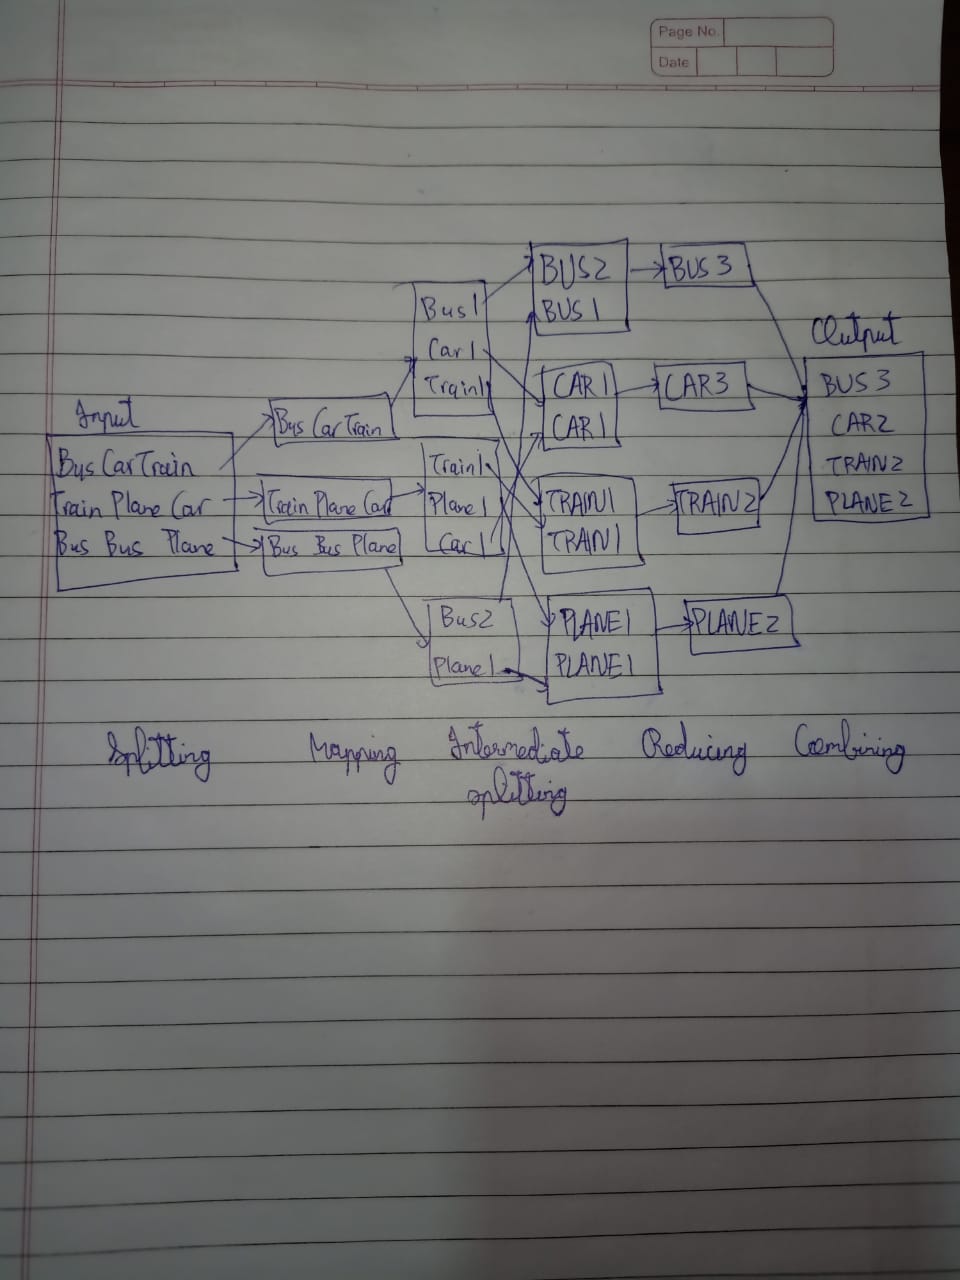 Page No.
Date
Input
Bus Car Train
Train Plane Car
Bus Bus Plane
Bus Car Train
Train Plane Car
Bus Bus Plane
Bus1
Car1
Train1
Train1
Plane1
Car1
Bus2
Plane1
BUS2
BUS1
CAR1
CAR1
TRAIN1
TRAIN1
PLANE1
PLANE1
BUS3
CAR3
TRAIN2
PLANE2
Output
BUS3
CAR2
TRAIN2
PLANE2
Splitting
Mapping
Intermediate
splitting
Reducing
Combining